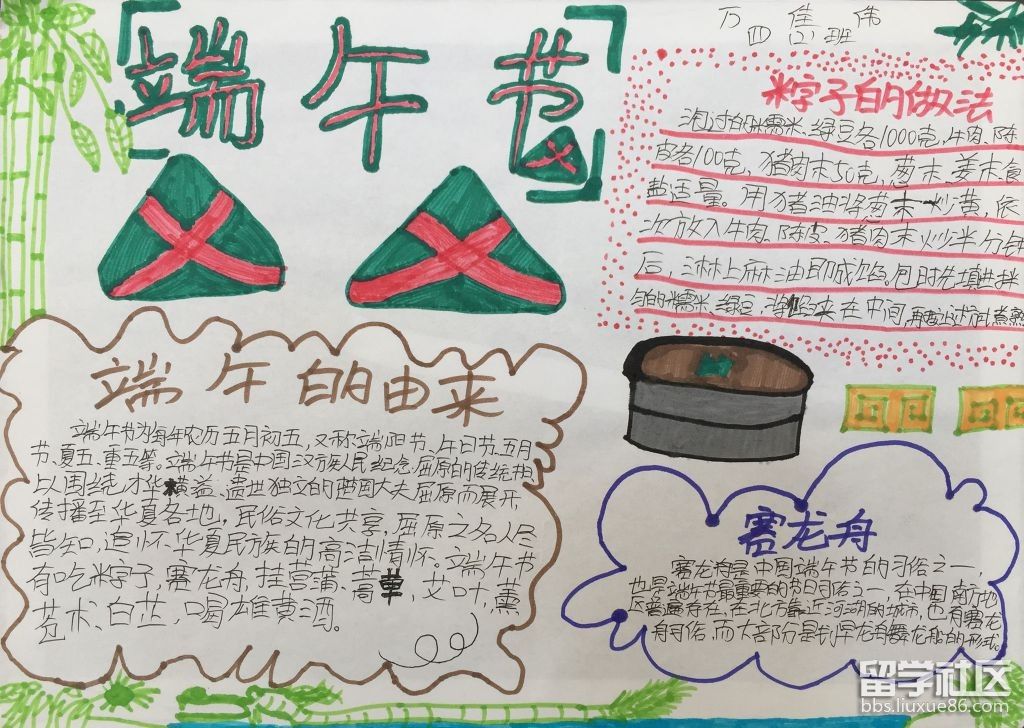 端午节
万佳伟
四(2)班
粽子的做法
泡过的糯米、绿豆各1000克,牛肉、陈
皮各100克,猪肉末50克,葱末、姜末食
盐适量。用猪油将葱末炒黄,依
次放入牛肉、陈皮、猪肉末炒半分钟
后,淋上麻油即成馅。包时先填进拌
匀的糯米、绿豆,将馅夹在中间,再
端午的由来
端午节为每年农历五月初五,又称端阳节、午日节、五月
节、夏五、重五等。端午节是中国汉族人民纪念屈原的传统节日
以围绕才华横溢、遗世独立的楚国大夫屈原而展开,
传播至华夏各地,民俗文化共享,屈原之名人尽
皆知,追怀华夏民族的高洁情怀。端午节
有吃粽子,赛龙舟,挂菖蒲、蒿草,艾叶,薰
苍术、白芷,喝雄黄酒。
赛龙舟
赛龙舟是中国端午节的习俗之一,
也是端午节最重要的节日习俗之一,在中国南方地
区普遍存在,在北方靠近河湖的城市,也有赛龙
舟习俗,而大部分是划旱龙舟舞龙船的形式。
留学社区
bbs.liuxue86.com